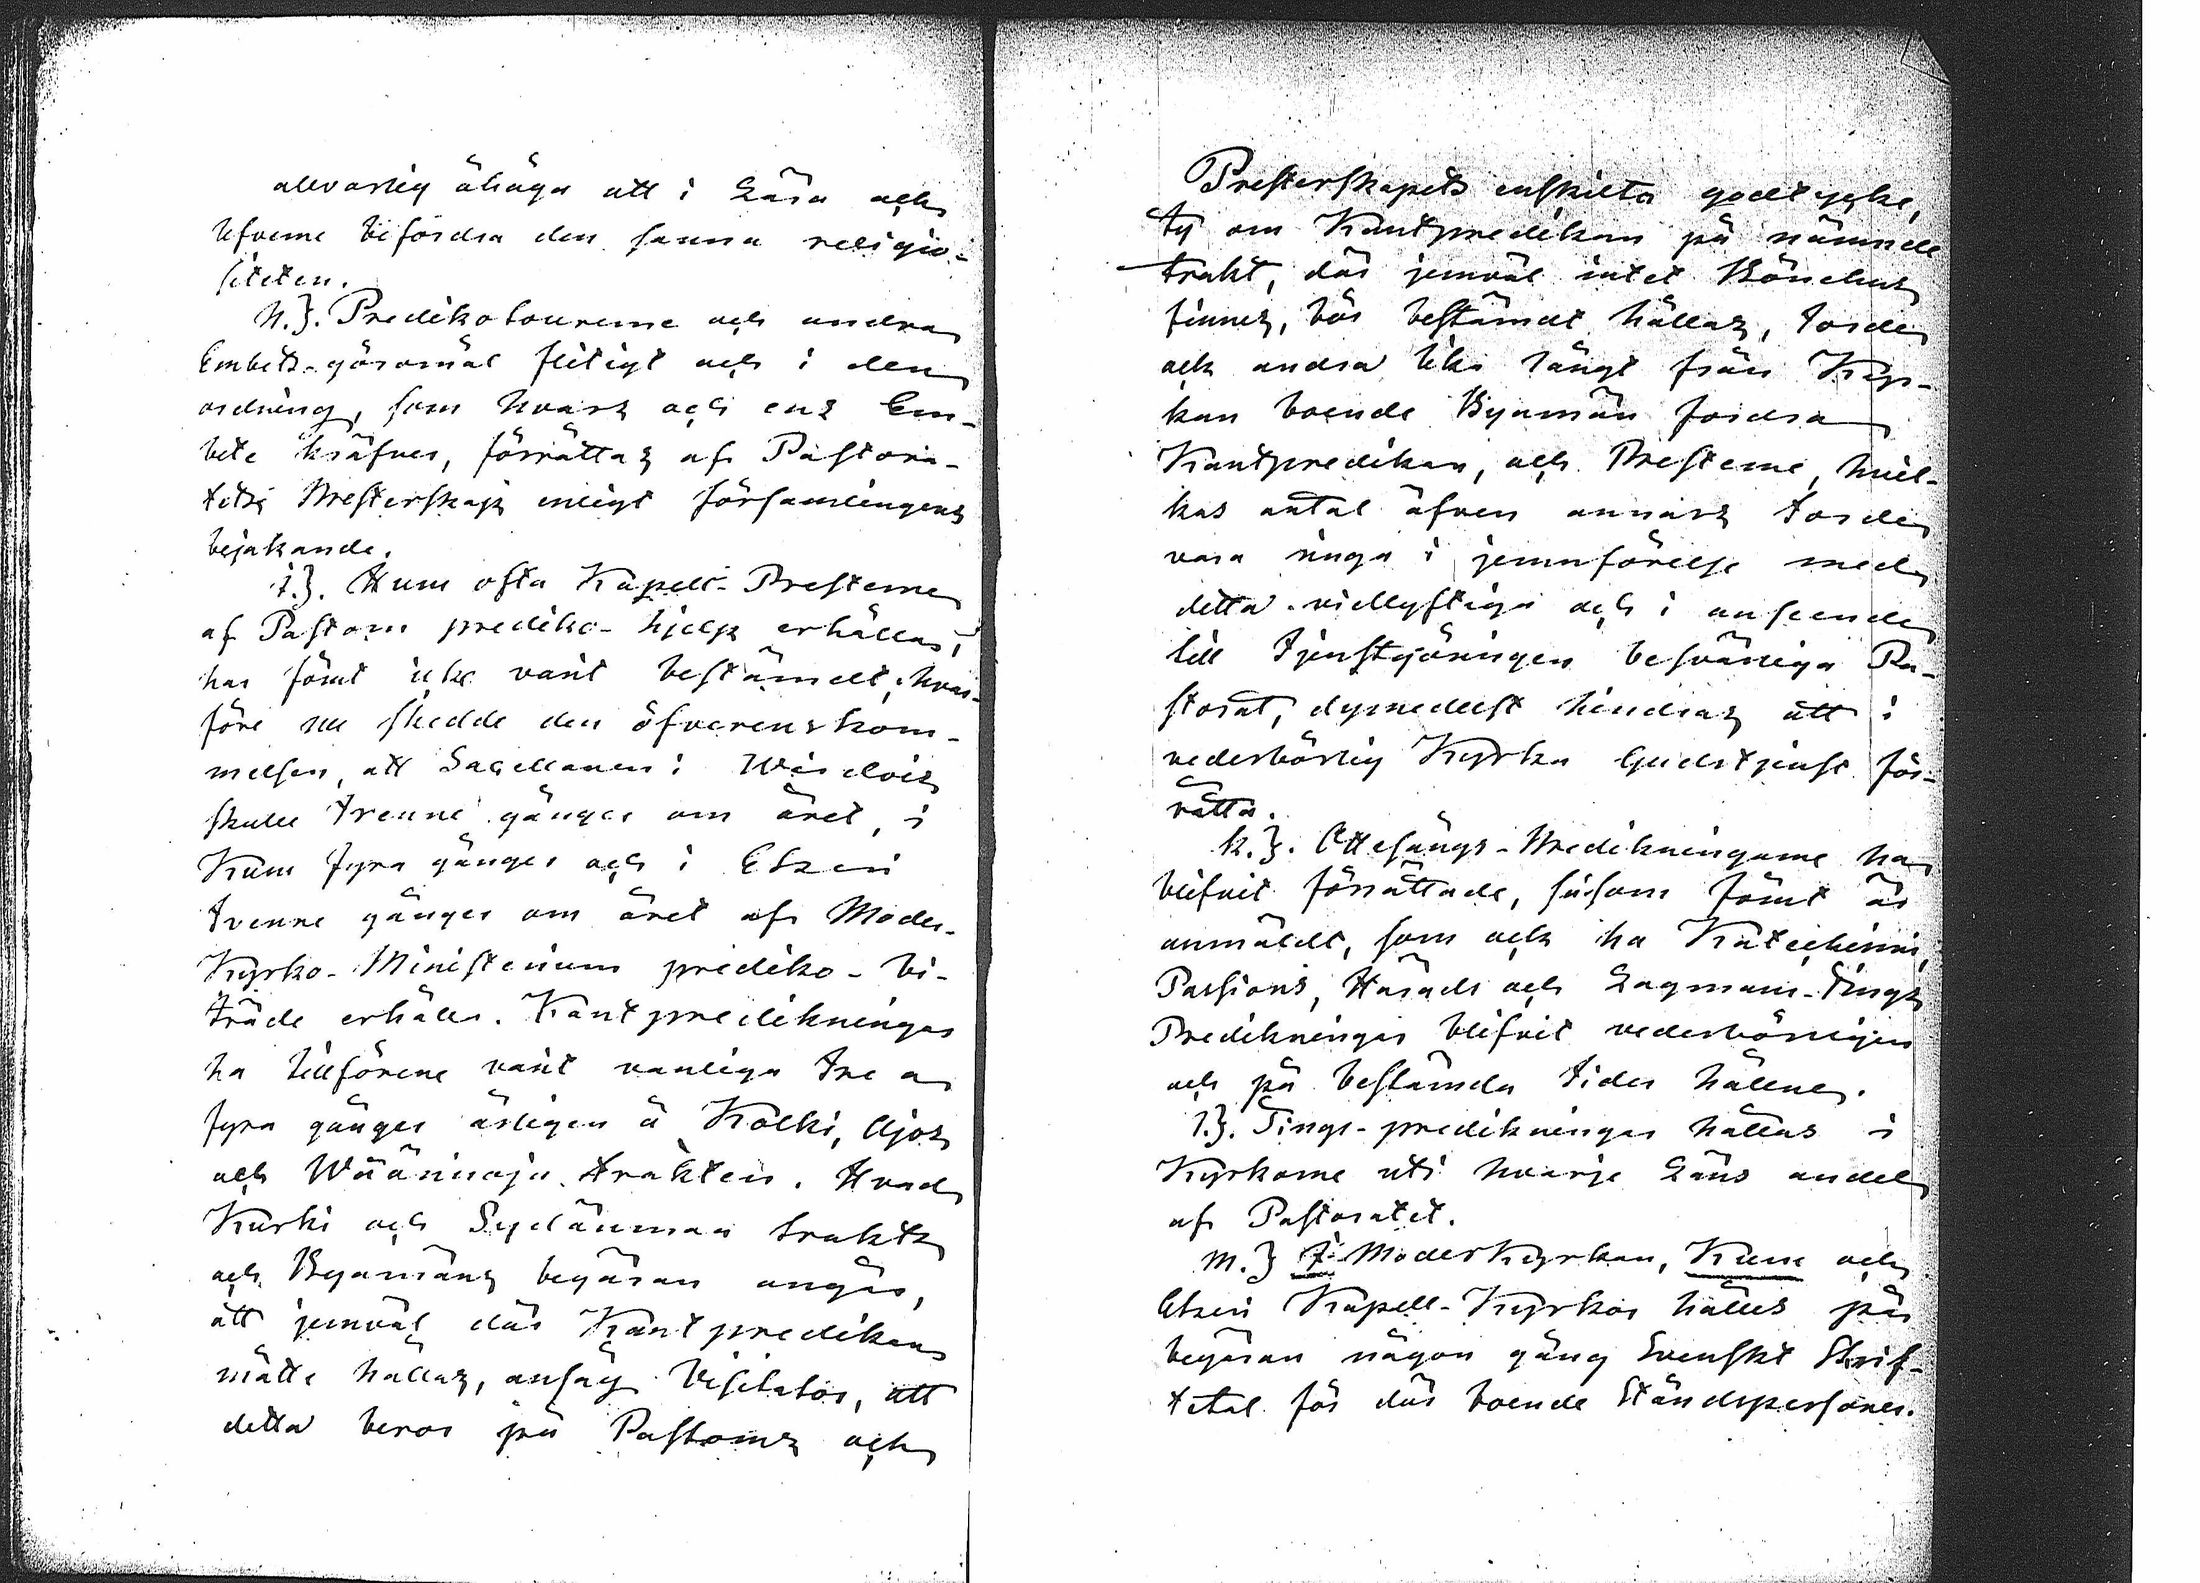 allvarlig åhåga att i Lära och
lefverne befordra den sanna religio-
siteten.
h.}. Predikotourerne och andra
Embets-göromål flitigt och i den
ordning, som hvars och ens Em-
bete kräfver, förrättas af Pastora-
tets Presterskap enligt församlingens
bejakande.
i.}. Huru ofta Kapell-Presterne
af Pastorn prediko-hjelp erhålla,
har förut icke varit bestämdt, hvar-
före nu skedde den öfverenskom-
melsen, att Sacellanen i
skulle trenne gånger om året, i
Kumo fyra gånger och i
tvenne gånger om året af Moder-
Kyrko-Ministerium prediko-bi-
träde erhålla. Kantpredikningar
ha tillförene varit vanliga tre a
fyra gånger årligen å Kolki,
och trakten. Hvad
Kurki och Sydänmaa trakts
och Byamäns begäran angår,
att jemväl där Kantpredikan
måtte hållas, ansåg Visitator, att
detta beror på Pastorns och
Presterskapets enskilta godtycke,
ty om Kantpredikan på nämnde
trakt, där jemväl intet Bönehus
finnes, bör bestämdt hållas, torde
ock andra lika långt från Kyr-
kan boende Byamän fordra
Kantpredikan, och Presterne, hvil-
kas antal äfven annars torde
vara ringa i jemnförelse med
detta vidlyftiga och i anseende
till tjenstgöringen besvärliga Pa-
storat, dymedelst hindras att i
vederbörlig Kyrka Gudstjenst för-
rätta.
k.}. Ottesångs-Predikningarne ha
blifvit förrättade, såsom förut är
anmäldt, som ock ha Katechismi,
Passions, Härads och Lagmans-Tings
Predikningar blifvit vederbörligen
och på bestämda tider hållne.
l.}. Tings-predikningar hållas i
Kyrkorne uti hvarje Läns andel
af Pastoratet.
m.} I ModerKyrkan, Kumo och
Kapell-Kyrkor hålles på
begäran någon gång Svenskt Skrif-
tetal för där boende Ståndspersoner.